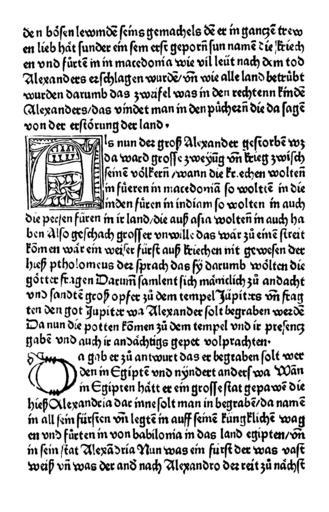 den bösen lewmdē seins gemachels dē er in gangē trew
en lieb hät sunder ein sem erst geporn̄ sun namē die kriech
en vnd fürtē in in macedonia wie vil leüt nach dem tod
Alexanders erschlagen wurdē/vn̄ wie alle land betrübt
wurden darumb das zwafel was in den rechtenn kindē
Alexanders/das vindet man in den püchern̄ die da sagē
von der erstörung der land.
Als nun der groß Alexander gestorbē wz
da ward grosse zweyūg vn̄ krieg zwisch
seinē völkern/wann die krechen woltēn
in füeren in macedoniā so woltēn in die
inden füren in indiam so wolten in auch
die persen füren in ir land/die auß asia woltēn in auch ha
ben Also geschach grosser vnwille das wär zū einē streit
kömen wär ein weiser fürst auß kriechen nit gewesen der
hieß ptholomeus der sprach das sy darumb wölten die
götter fragen Darum̄ samlent sich mänicklich zū andacht
vnd sandtē groß opfer zū dem tempel Jupiters vn̄ frag
ten den got Jupiter wa Alexander solt begraben werdē
Da nun die potten kömen zū dem tempel vnd ir presencz
gabē vnd auch ir andächtigs gepet volprachten.
Da gab er zū antwurt das er begraben solt wer
den in Egiptē vnd nyndert anders wa Wān
in Egipten hätt er ein grosse stat gepawē die
hieß Alexandria dar inne solt man in begrabē/da namē
in all sein fürsten vn̄ legtē in auff seinē küngklichē wag
en vnd fürten in von babilonia in das land egipten/vn̄
in sein stat Alexādria Nun was ein fürst der was vast
weiß vn̄ was der and nach Alexandro der reit zū nächst